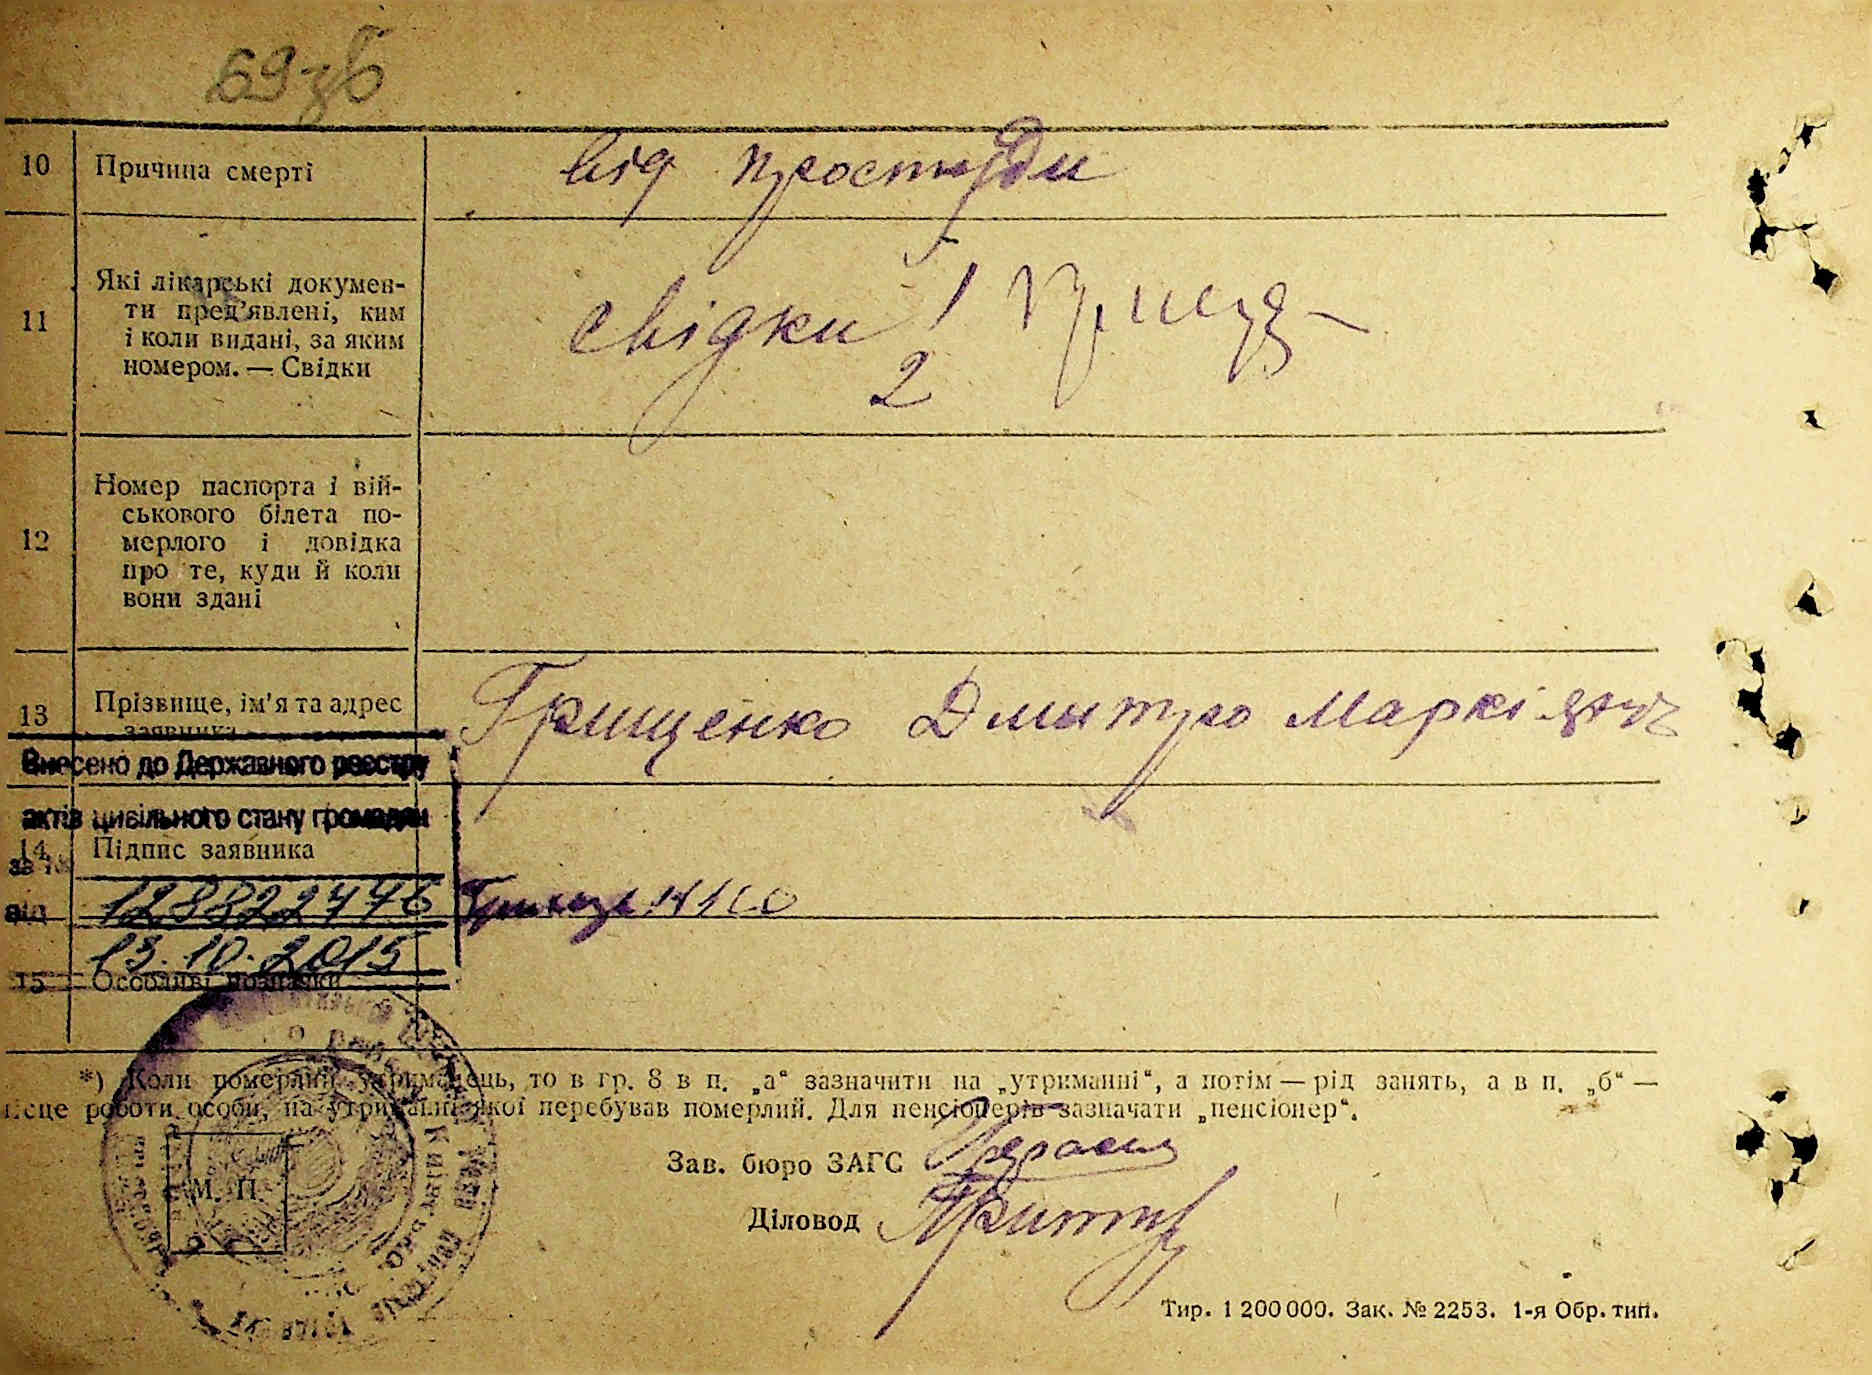 69 зв
10 Причина смерті від простуди
11 Які лікарські докумен-
ти пред'явлені, ким
і коли видані, за яким
номером. — Свідки
свідки 1
2
12 Номер паспорта і вій-
ськового білета по-
мерлого і довідка
про те, куди й коли
вони здані
13 Прізвище, ім'я та адрес
заявника
Грищенко Дмитро
Внесено до Державного реєстру
актів цивільного стану громадян
14 Підпис заявника
за №
128822476
від
13.10.2015
15 Особливі позначки
*) Коли померлий утриманець, то в гр. 8 в п. „а“ зазначити на „утриманні“, а потім — рід занять, а в п. „б“ —
місце роботи особи, на утриманні якої перебував померлий. Для пенсіонерів зазначати „пенсіонер“.
М. П.
Зав. бюро ЗАГС
Діловод
Тир. 1 200 000. Зак. № 2253. 1-я Обр. тип.